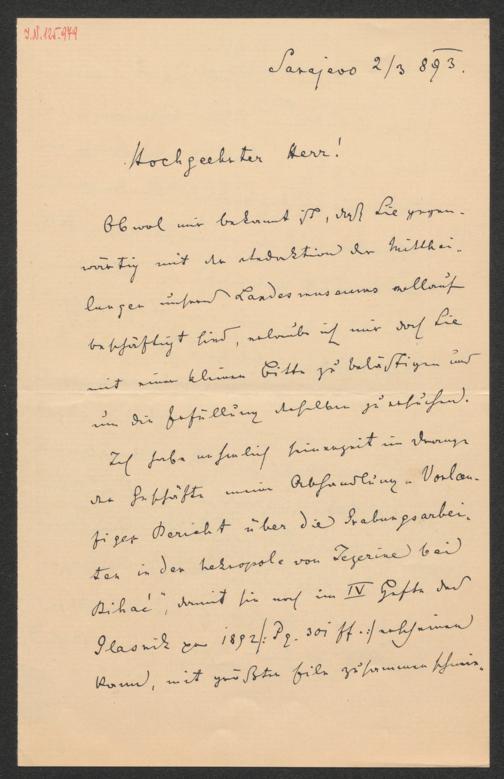 I.N. 125.979
Sarajevo 2/3 893.
Hochgeehrter Herr!
Obwol mir bekannt ist, daß Sie gegen-
wärtig mit der Redaktion der Mitthei-
lungen unseres Landesmuseums vollauf
beschäftigt sind, erlaube ich mir doch Sie
mit einer kleinen Bitte zu belästigen und
um die Erfüllung derselben zu ersuchen.
Ich habe nehmlich seinerzeit im Drange
der Geschäfte meine Abhandlung „Vorläu-
figer Bericht über die Grabungsarbei-
ten in der Nekropole von Jezerine bei
Bihać", damit sie noch im IV Hefte des
Glasnik pro 1892 /: Pg. 301 ff. :/ erscheinen
kann, mit größter Eile zusammenschrei-